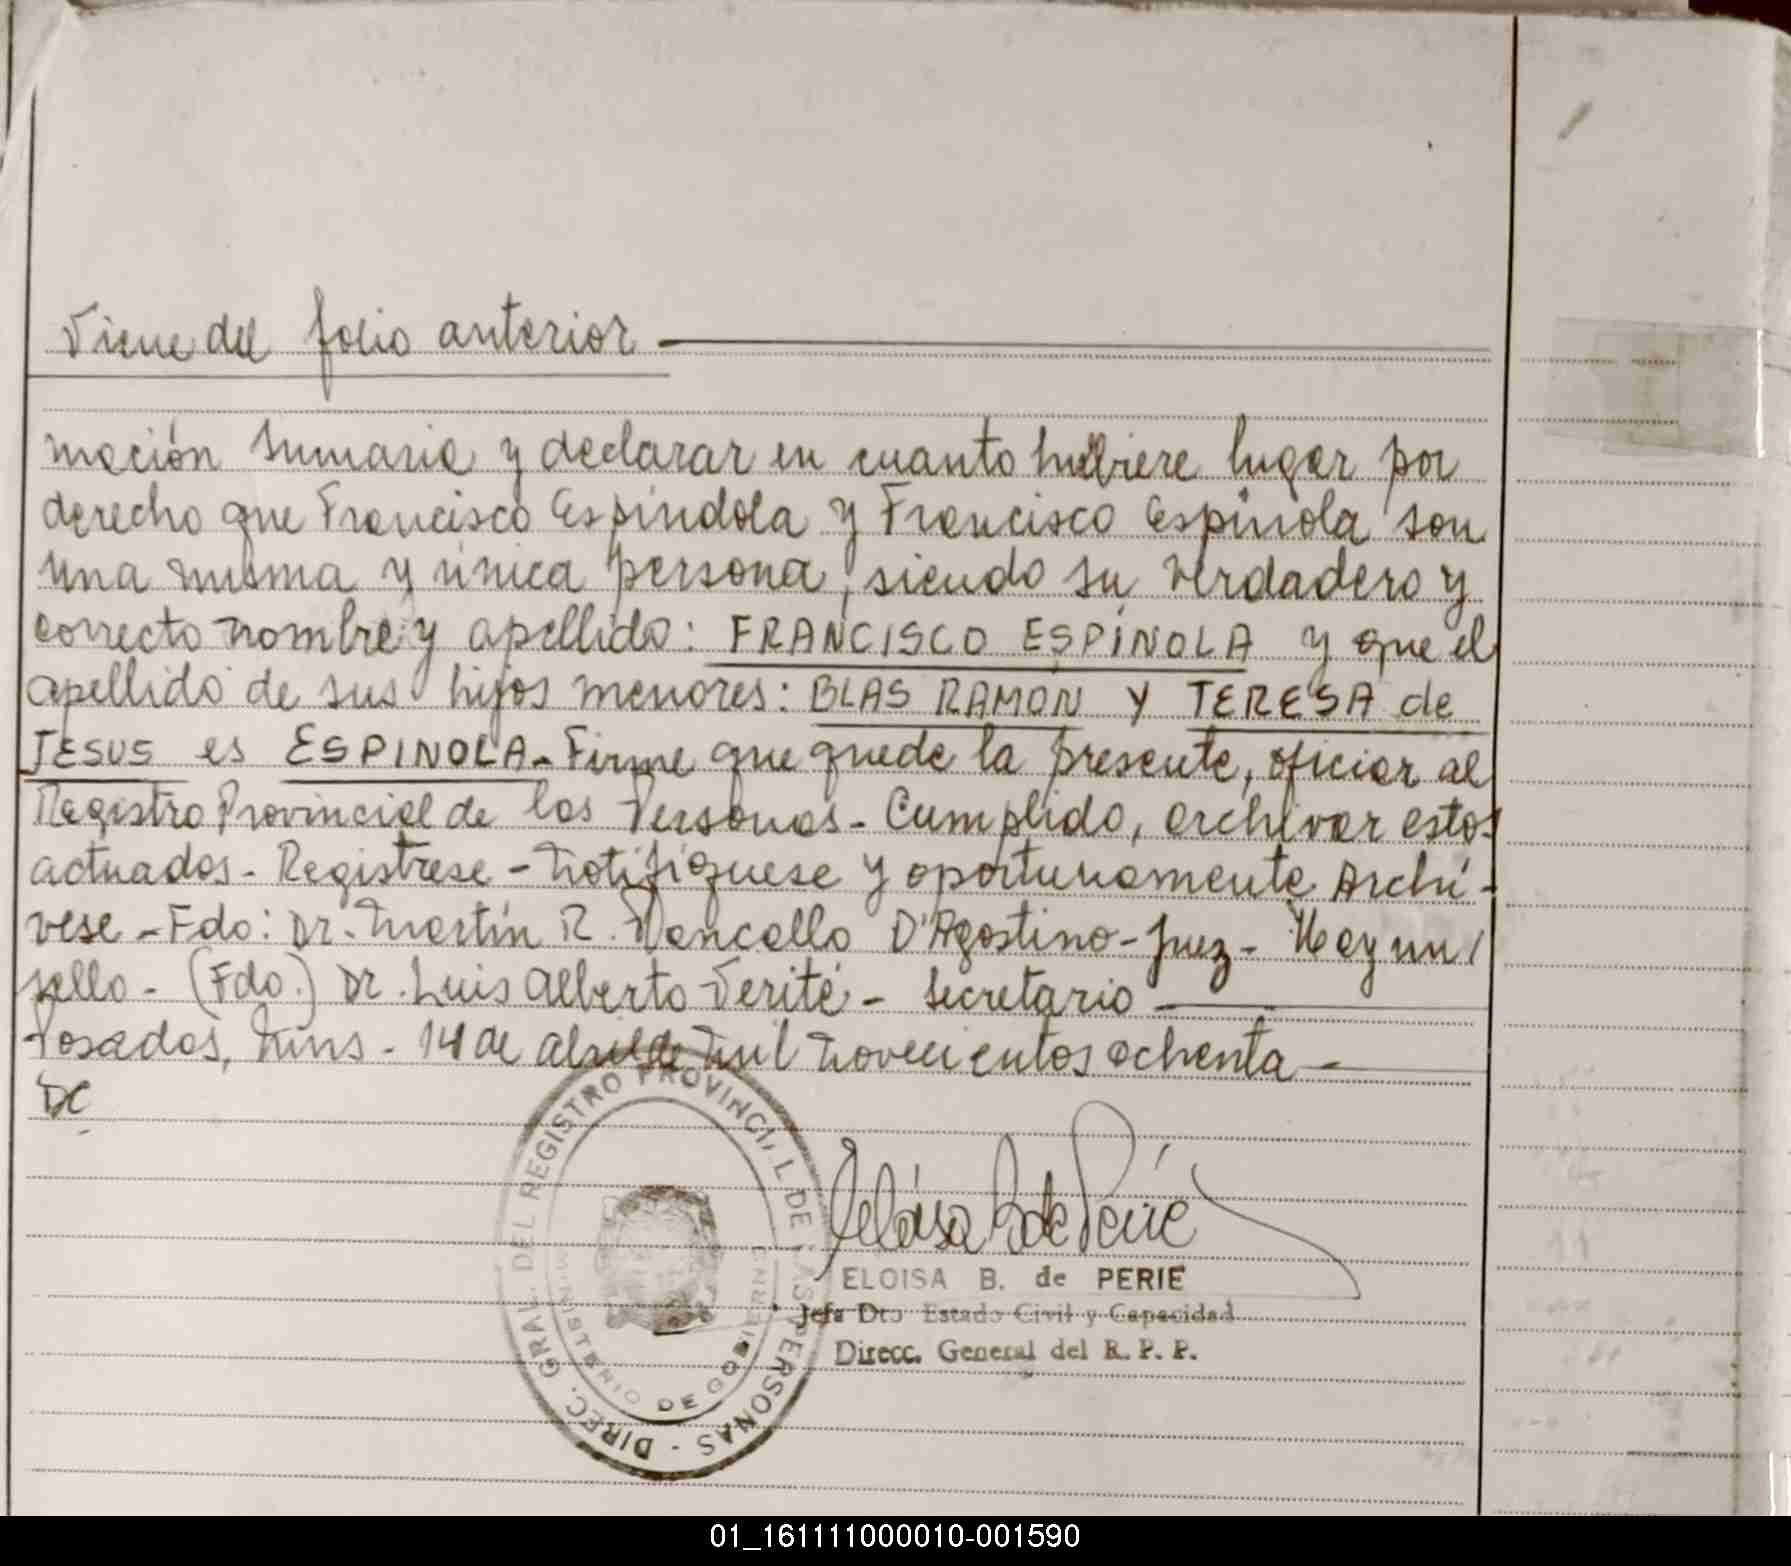 Viene del folio anterior
mación sumaria y declarar en cuanto hubiere lugar por
derecho que Francisco Espíndola y Francisco Espínola son
una misma y única persona, siendo su verdadero y
correcto nombre y apellido: FRANCISCO ESPÍNOLA y que el
apellido de sus hijos menores: BLAS RAMÓN Y TERESA de
JESUS es ESPINOLA - Firme que quede la presente, oficiar al
Registro Provincial de las Personas - Cumplido, archivar estos
actuados - Registrese - Notifíquese y oportunamente Archí-
vese - Fdo: Dr. Martín R. Mancello D'Agostino - Juez - Hay un /
sello - (Fdo.) Dr. Luis Alberto Verité - Secretario
Posadas, Mns - 14 de abril de mil novecientos ochenta -
DC
DIREC. GRAL. DEL REGISTRO PROVINCI L DE AS PERSONAS -
MINISTERIO DE GOBIERN
Eloisa B de Perié
ELOISA B. de PERIE
Jefa Dto Estado Civil y Capacidad
Direcc. General del R. P. P.
01_161111000010-001590